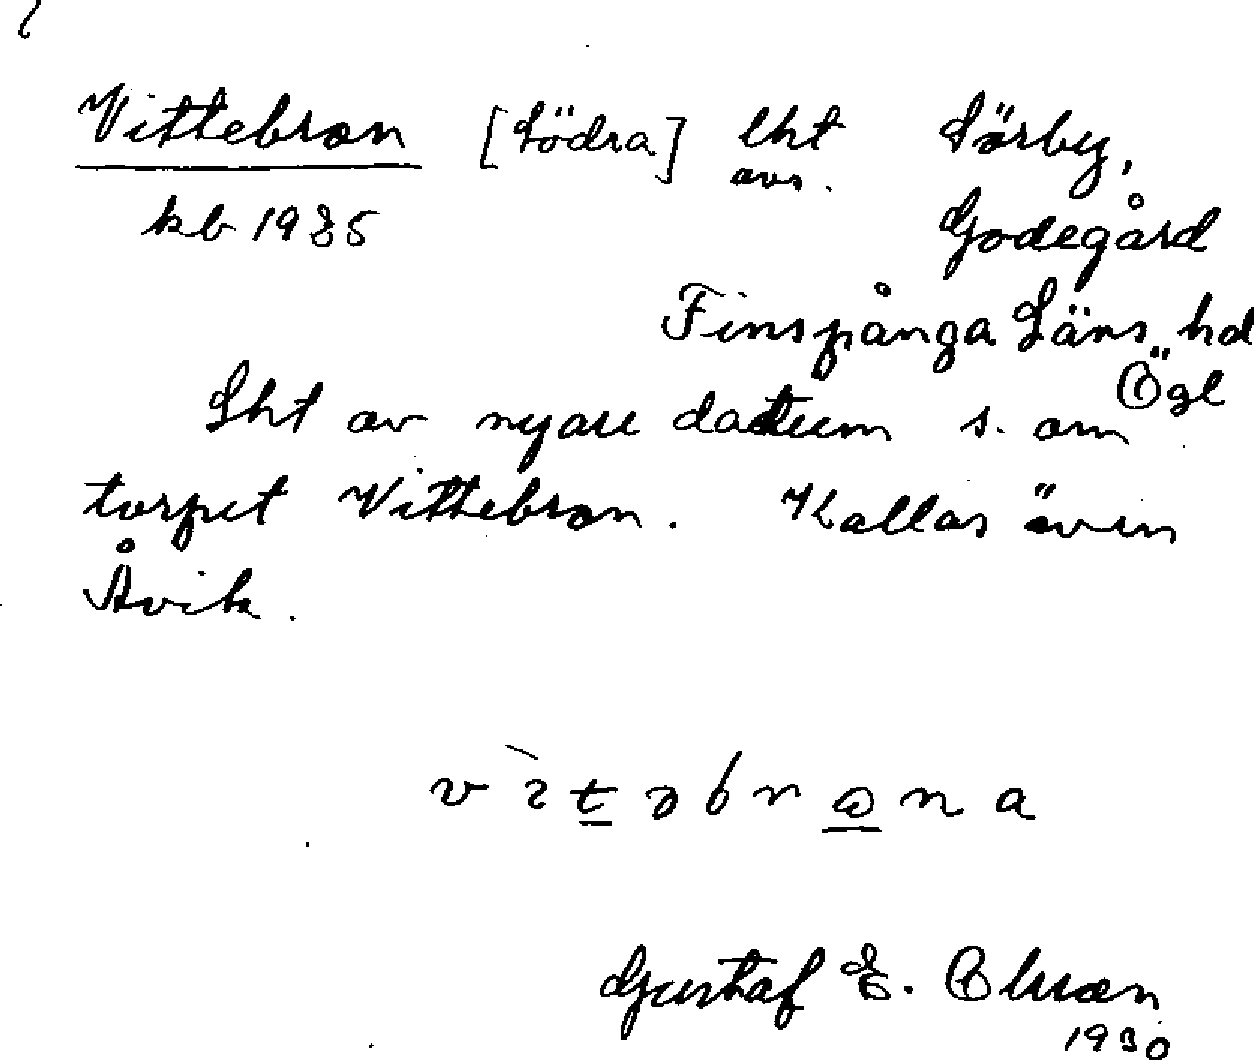 Vittebron [Södra] lht Sörby,
avs.
kb 1935 Godegård
Finspånga Läns hd
Ögl
Lht av nyare datum s. om
torpet Vittebron. Kallas även
Åvik.
Gustaf E. Olsson
1930